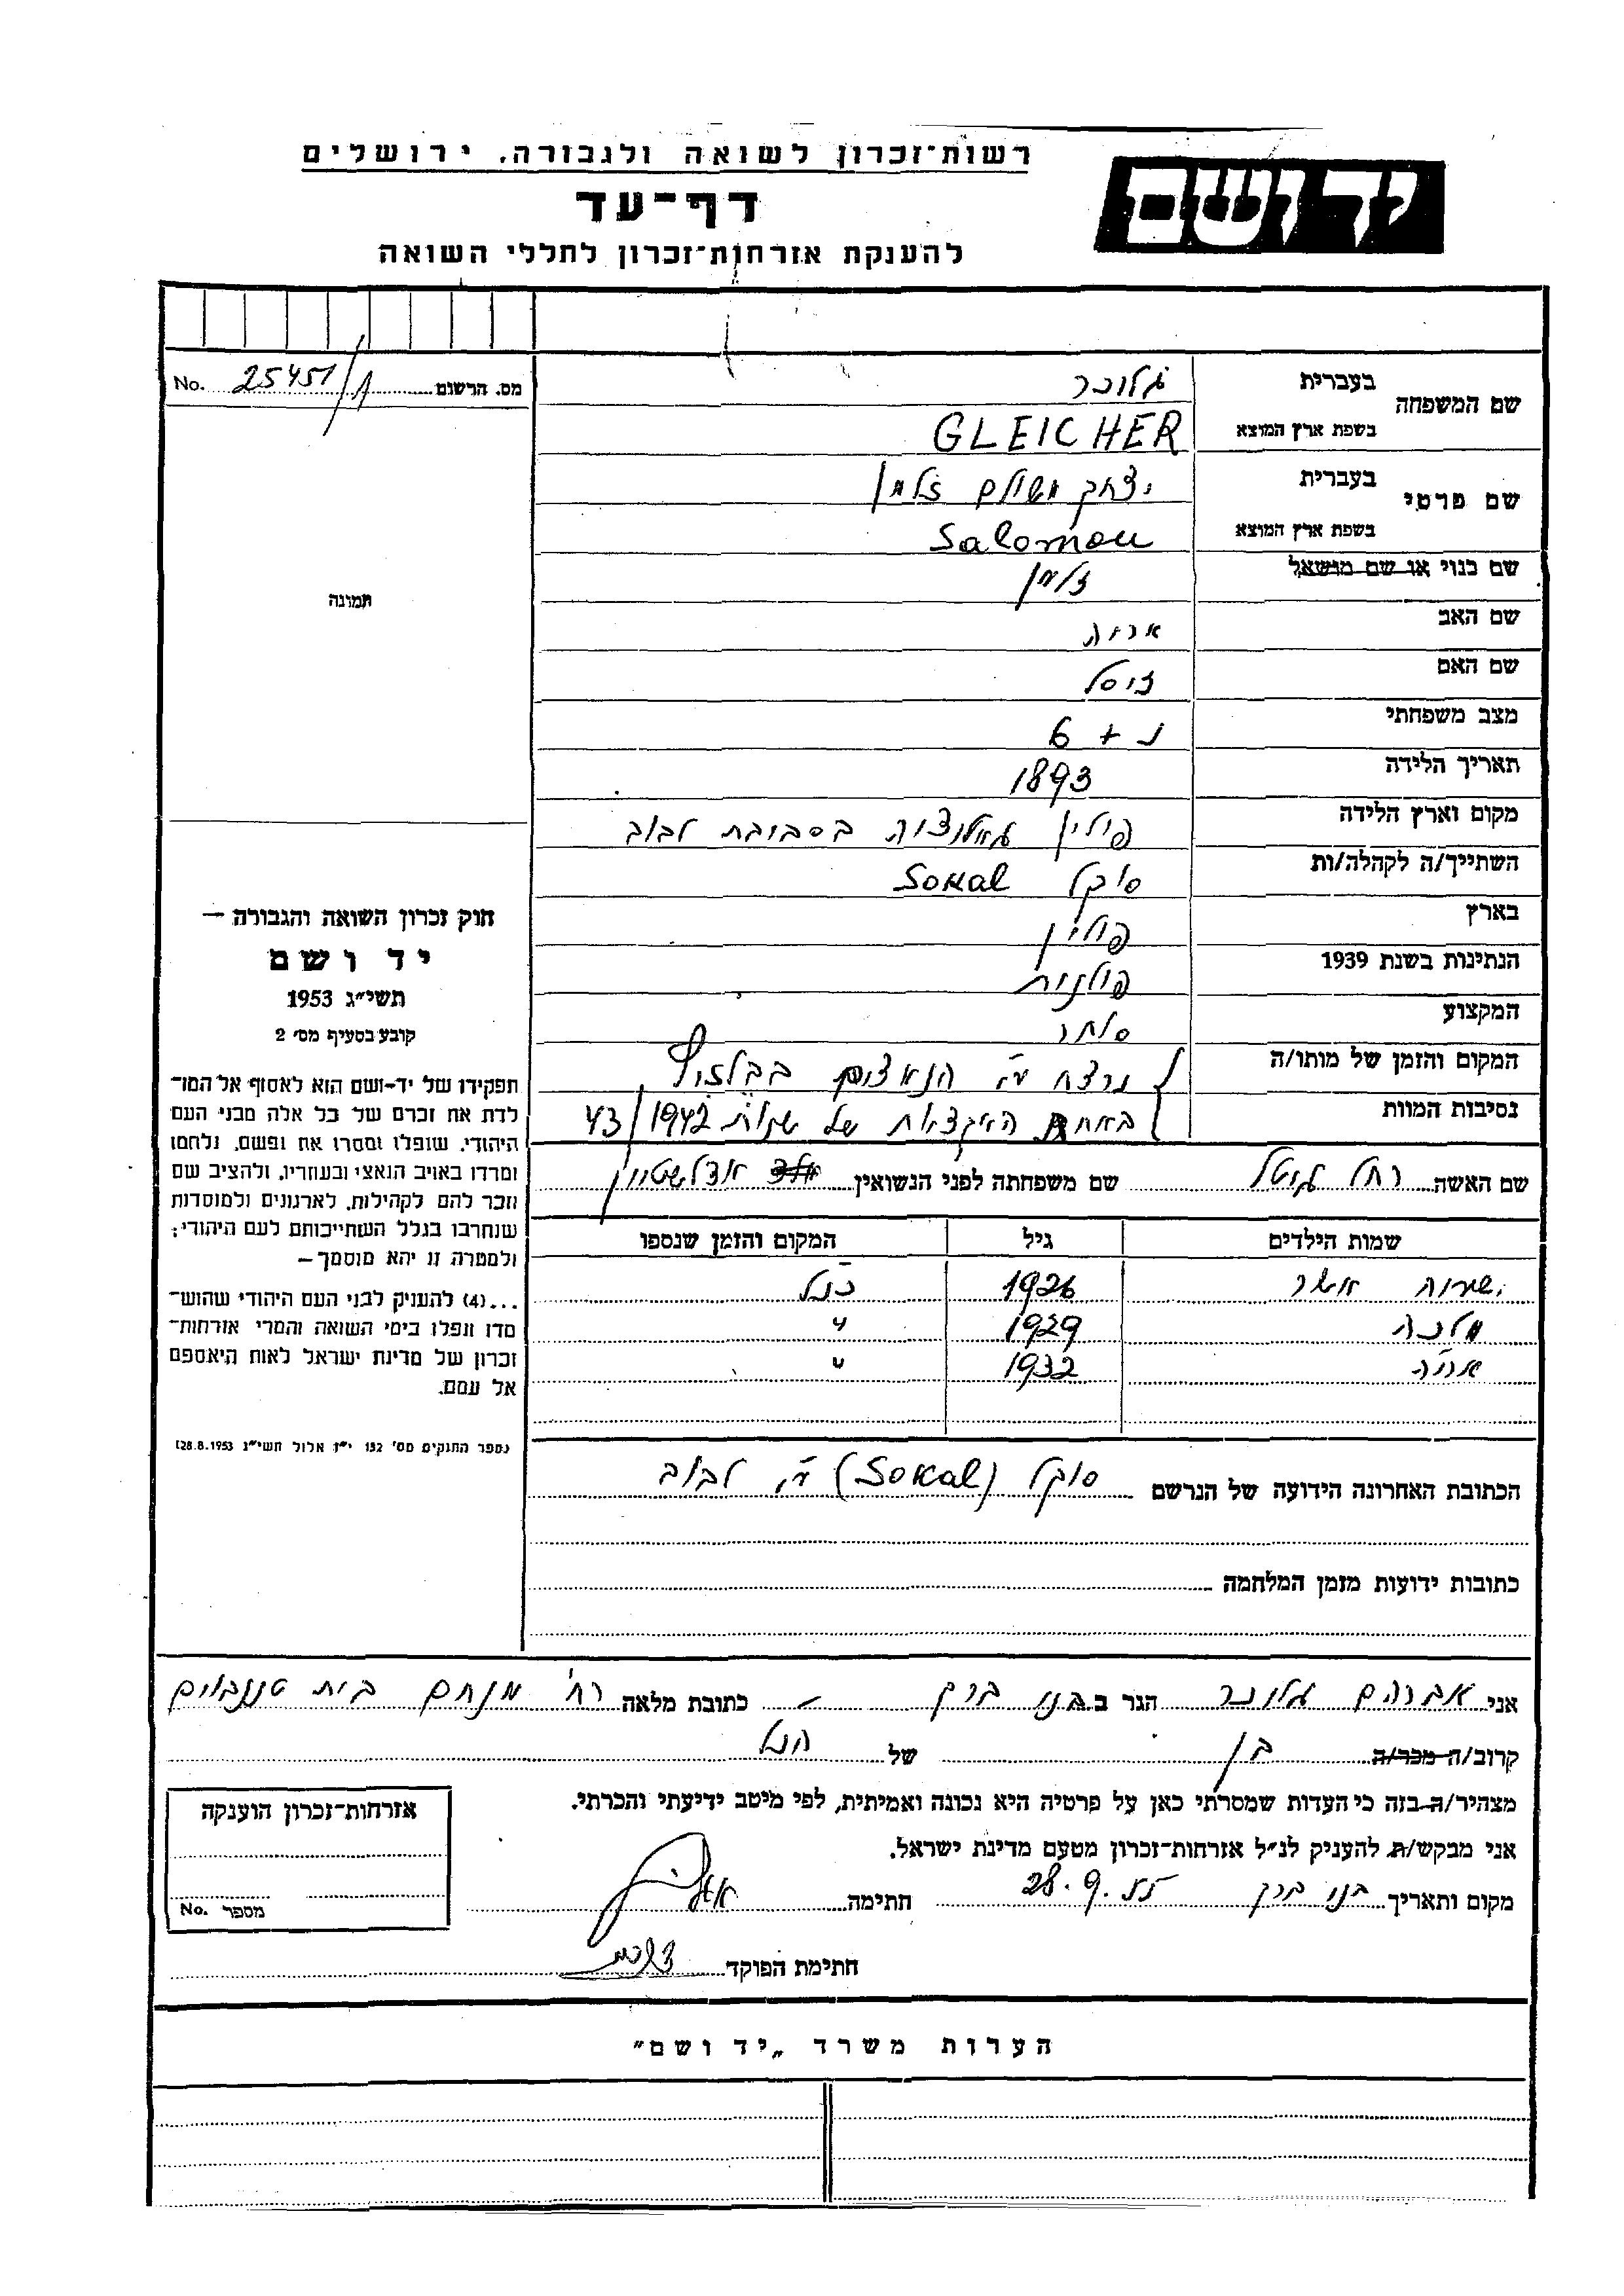 רשות־זכרון לשואה ולגבורה. ירושלים
יד ושם
דף־עד
להענקת אזרחות־זכרון לחללי השואה
No. 25451/1 מס. הרשום
תמונה
חוק זכרון השואה והגבורה —
יד ושם
תשי״ג 1953
קובע בסעיף מס׳ 2
תפקידו של יד-ושם הוא לאסוף אל המו־
לדת את זכרם של כל אלה מבני העם
היהודי, שנפלו ומסרו את נפשם, נלחמו
ומרדו באויב הנאצי ובעוזריו, ולהציב שם
וזכר להם לקהילות, לארגונים ולמוסדות
שנחרבו בגלל השתייכותם לעם היהודי;
ולמטרה זו יהא מוסמך —
...(4) להעניק לבני העם היהודי שהוש־
מדו ונפלו בימי השואה והמרי אזרחות־
זכרון של מדינת ישראל לאות היאספם
אל עמם.
(ספר החוקים מס׳ 132 י״ז אלול תשי״ג 28.8.1953)
שם המשפחה בעברית גלוכר
בשפת ארץ המוצא GLEICHER
שם פרטי בעברית יצחק משולם זלמן
בשפת ארץ המוצא Salomon
שם כנוי או שם מושאל זלמן
שם האב אריה
שם האם זיסל
מצב משפחתי נ + 6
תאריך הלידה 1893
מקום וארץ הלידה פולין גאליציה בסביבת לבוב
השתייך/ה לקהלה/ות סוקל Sokal
בארץ פולין
הנתינות בשנת 1939 פולנית
המקצוע סוחר
המקום והזמן של מותו/ה נרצח ע״י הנאצים בבלזיץ
נסיבות המוות באחת האקציות של שנות 1942/43
שם האשה רחל גיטל שם משפחתה לפני הנשואין אדלשטיין
שמות הילדים גיל המקום והזמן שנספו
ישעיה אשר 1926 כנ״ל
מלכה 1929 "
אריה 1932 "
הכתובת האחרונה הידועה של הנרשם סוקל (Sokal) ע״י לבוב
כתובות ידועות מזמן המלחמה
אני אברהם גלוכר הגר ב בני ברק כתובת מלאה רח׳ מנחם בית טננבוים
קרוב/ה מכר/ה בן של הנ״ל
מצהיר/ה בזה כי העדות שמסרתי כאן על פרטיה היא נכונה ואמיתית, לפי מיטב ידיעתי והכרתי.
אני מבקש/ת להעניק לנ״ל אזרחות־זכרון מטעם מדינת ישראל.
מקום ותאריך בני ברק 28.9.55 חתימה
חתימת הפוקד
אזרחות־זכרון הוענקה
מספר No.
הערות משרד „יד ושם״